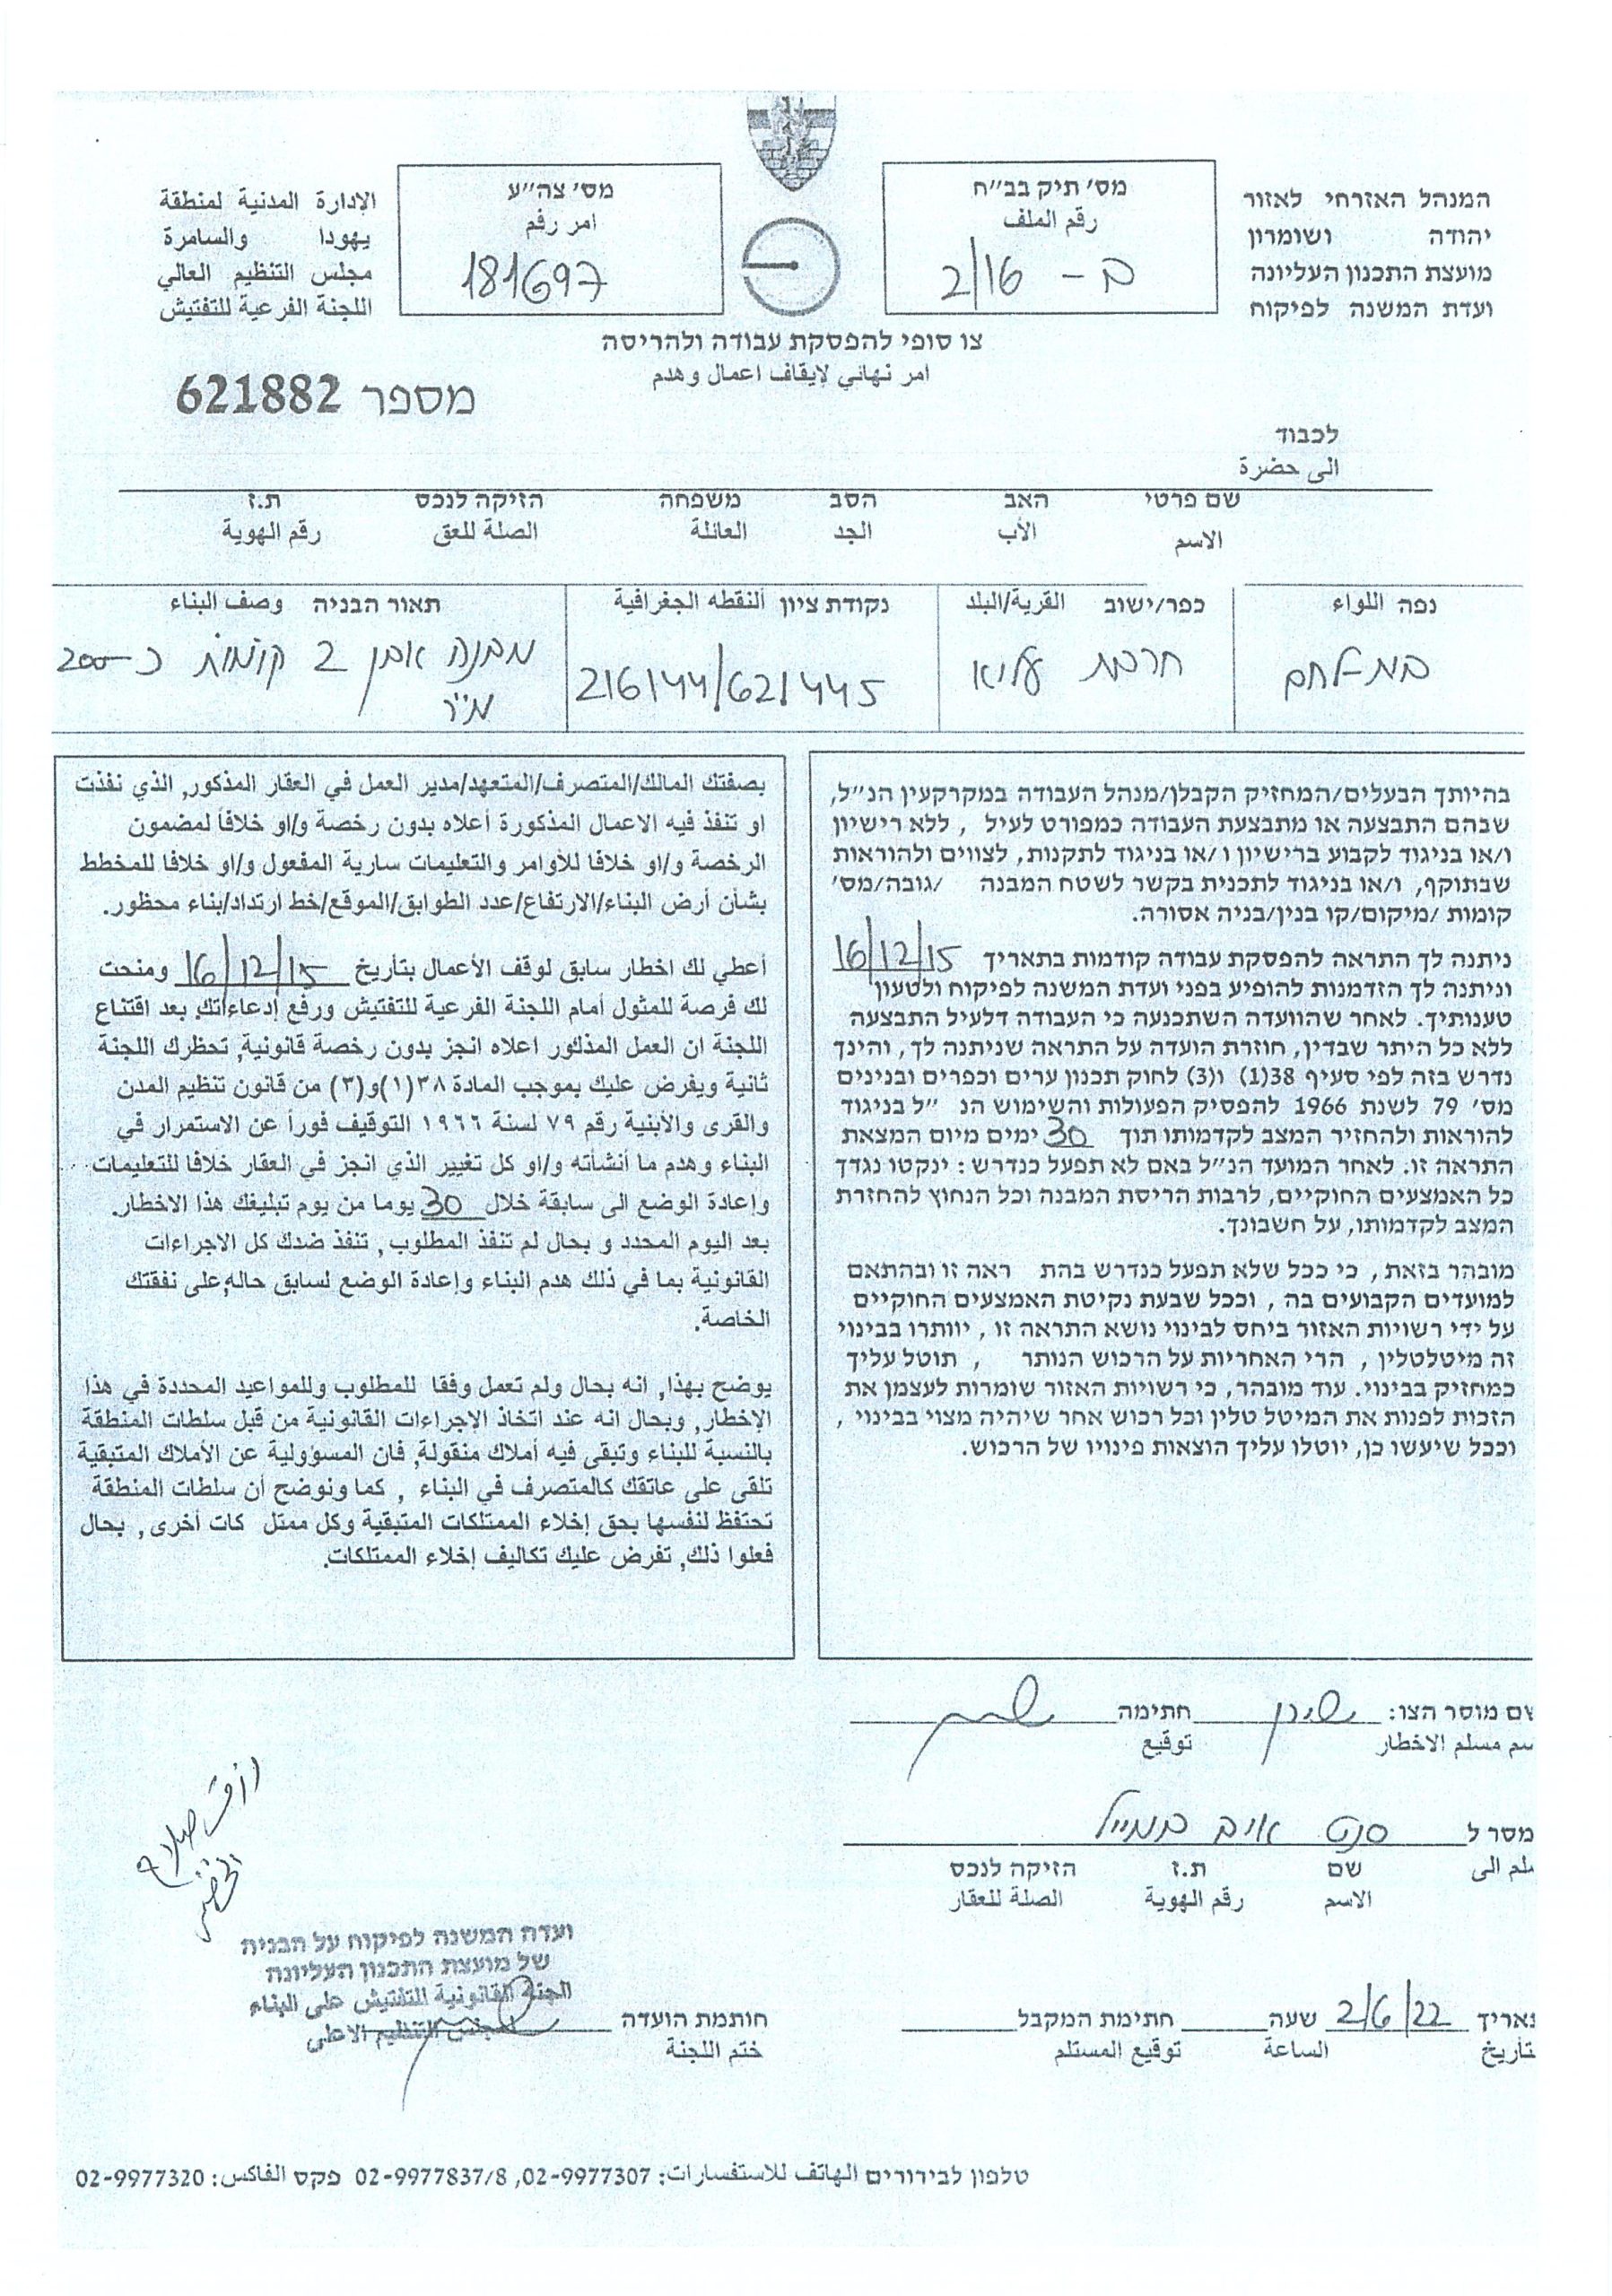 המנהל האזרחי לאזור
יהודה ושומרון
מועצת התכנון העליונה
ועדת המשנה לפיקוח
מס׳ תיק בב״ח
رقم الملف
ב - 2/16
מס׳ צה״ע
امر رقم
181697
الإدارة المدنية لمنطقة
يهودا والسامرة
مجلس التنظيم العالي
اللجنة الفرعية للتفتيش
צו סופי להפסקת עבודה ולהריסה
امر نهائي لإيقاف اعمال وهدم
מספר 621882
לכבוד
الى حضرة
שם פרטי האב הסב משפחה הזיקה לנכס ת.ז
الاسم الأب الجد العائلة الصلة للعق رقم الهوية
נפה اللواء כפר/ישוב القرية/البلد נקודת ציון النقطه الجغرافية תאור הבניה وصف البناء
בת-לחם חרבת עליא 216144/621445 מבנה אבן 2 קומות כ-200
מ״ר
בהיותך הבעלים/המחזיק הקבלן/מנהל העבודה במקרקעין הנ״ל,
שבהם התבצעה או מתבצעת העבודה כמפורט לעיל , ללא רישיון
ו/או בניגוד לקבוע ברישיון ו/או בניגוד לתקנות, לצווים ולהוראות
שבתוקף, ו/או בניגוד לתכנית בקשר לשטח המבנה /גובה/מס׳
קומות /מיקום/קו בנין/בניה אסורה.
ניתנה לך התראה להפסקת עבודה קודמות בתאריך 16/12/15
וניתנה לך הזדמנות להופיע בפני ועדת המשנה לפיקוח ולטעון
טענותיך. לאחר שהוועדה השתכנעה כי העבודה דלעיל התבצעה
ללא כל היתר שבדין, חוזרת הועדה על התראה שניתנה לך, והינך
נדרש בזה לפי סעיף 38(1) ו(3) לחוק תכנון ערים וכפרים ובנינים
מס׳ 79 לשנת 1966 להפסיק הפעולות והשימוש הנ ״ל בניגוד
להוראות ולהחזיר המצב לקדמותו תוך 30 ימים מיום המצאת
התראה זו. לאחר המועד הנ״ל באם לא תפעל כנדרש : ינקטו נגדך
כל האמצעים החוקיים, לרבות הריסת המבנה וכל הנחוץ להחזרת
המצב לקדמותו, על חשבונך.
מובהר בזאת, כי ככל שלא תפעל כנדרש בהת ראה זו ובהתאם
למועדים הקבועים בה , וככל שבעת נקיטת האמצעים החוקיים
על ידי רשויות האזור ביחס לבינוי נושא התראה זו , יוותרו בבינוי
זה מיטלטלין , הרי האחריות על הרכוש הנותר , תוטל עליך
כמחזיק בבינוי. עוד מובהר, כי רשויות האזור שומרות לעצמן את
הזכות לפנות את המיטל טלין וכל רכוש אחר שיהיה מצוי בבינוי ,
וככל שיעשו כן, יוטלו עליך הוצאות פינויו של הרכוש.
بصفتك المالك/المتصرف/المتعهد/مدير العمل في العقار المذكور, الذي نفذت
او تنفذ فيه الاعمال المذكورة أعلاه بدون رخصة و/او خلافاً لمضمون
الرخصة و/او خلافا للأوامر والتعليمات سارية المفعول و/او خلافا للمخطط
بشأن أرض البناء/الارتفاع/عدد الطوابق/الموقع/خط ارتداد/بناء محظور.
أعطي لك اخطار سابق لوقف الأعمال بتأريخ 16/12/15 ومنحت
لك فرصة للمثول أمام اللجنة الفرعية للتفتيش ورفع إدعاءاتك. بعد اقتناع
اللجنة ان العمل المذكور اعلاه انجز بدون رخصة قانونية, تحظرك اللجنة
ثانية ويفرض عليك بموجب المادة ٣٨(١)و(٣) من قانون تنظيم المدن
والقرى والأبنية رقم ٧٩ لسنة ١٩٦٦ التوقيف فوراً عن الاستمرار في
البناء وهدم ما أنشأته و/او كل تغيير الذي انجز في العقار خلافا للتعليمات
وإعادة الوضع الى سابقة خلال 30 يوما من يوم تبليغك هذا الاخطار.
بعد اليوم المحدد و بحال لم تنفذ المطلوب, تنفذ ضدك كل الاجراءات
القانونية بما في ذلك هدم البناء وإعادة الوضع لسابق حاله,على نفقتك
الخاصة.
يوضح بهذا, انه بحال ولم تعمل وفقا للمطلوب وللمواعيد المحددة في هذا
الإخطار, وبحال انه عند اتخاذ الإجراءات القانونية من قبل سلطات المنطقة
بالنسبة للبناء وتبقى فيه أملاك منقولة, فان المسؤولية عن الأملاك المتبقية
تلقى على عاتقك كالمتصرف في البناء , كما ونوضح أن سلطات المنطقة
تحتفظ لنفسها بحق إخلاء الممتلكات المتبقية وكل ممتل كات أخرى, بحال
فعلوا ذلك, تفرض عليك تكاليف إخلاء الممتلكات.
שם מוסר הצו: חתימה
سم مسلم الاخطار توقيع
מסר ל
לم الى
שם ת.ז הזיקה לנכס
الاسم رقم الهوية الصلة للعقار
ועדת המשנה לפיקוח על הבניה
של מועצת התכנון העליונה
اللجنة القانونية للتفتيش على البناء
لمجلس التنظيم الاعلى
תאריך 2/6/22 שעה חתימת המקבל חותמת הועדה
تأريخ الساعة توقيع المستلم ختم اللجنة
טלפון לבירורים الهاتف للاستفسارات: 02-9977307, 02-9977837/8 פקס الفاكس: 02-9977320